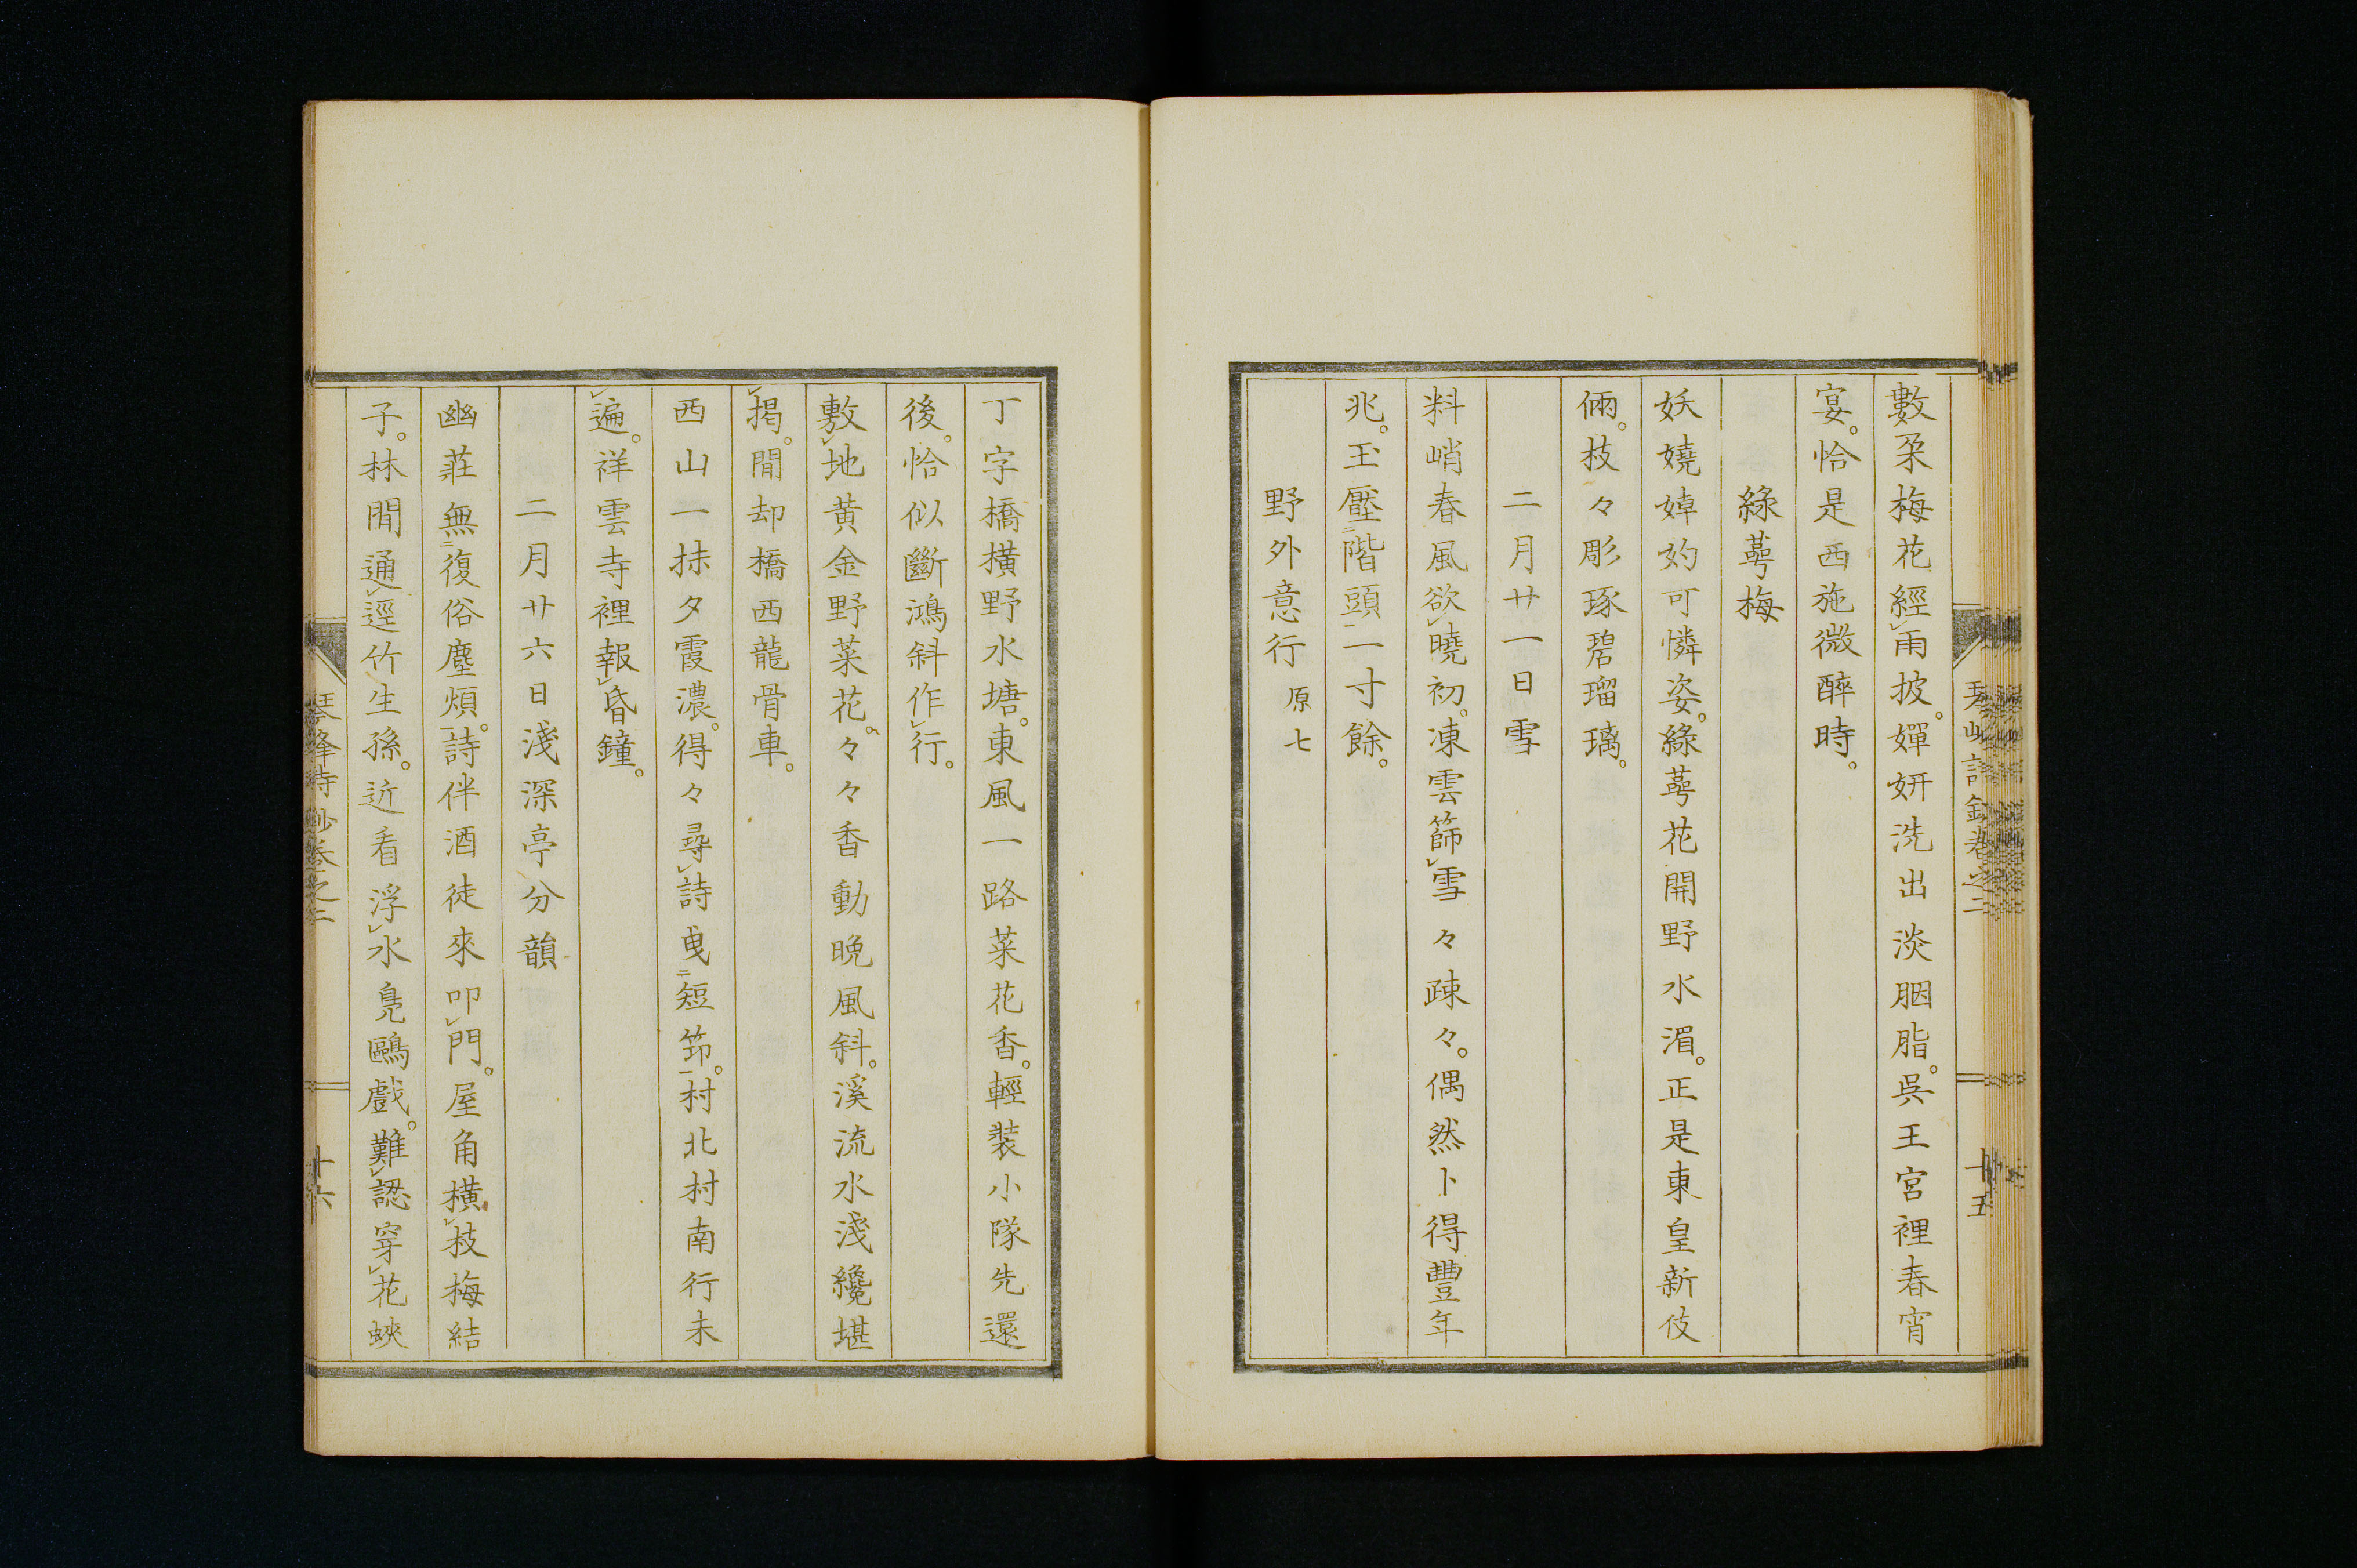 數朶梅花經雨披。嬋妍洗出淡胭脂。吳王宮裡春宵
宴。恰是西施微醉時。
綠萼梅
妖嬈婥妁可憐姿。綠萼花開野水湄。正是東皇新伎
倆。枝々彫琢碧瑠璃。
二月廿一日雪
料峭春風欲曉初。凍雲篩雪々疎々。偶然卜得豐年
兆。玉壓階頭一寸餘。
野外意行 原七
丁字橋橫野水塘。東風一路菜花香。輕裝小隊先還
後。恰似斷鴻斜作行。
敷地黃金野菜花。々々香動晚風斜。溪流水淺纔堪
揭。閒却橋西龍骨車。
西山一抹夕霞濃。得々尋詩曳短笻。村北村南行未
遍。祥雲寺裡報昏鐘。
二月廿六日淺深亭分韻
幽莊無復俗塵煩。詩伴酒徒來叩門。屋角橫枝梅結
子。林閒通逕竹生孫。近看浮水鳧鷗戲。難認穿花蛺
琴峰詩鈔卷之二
十六